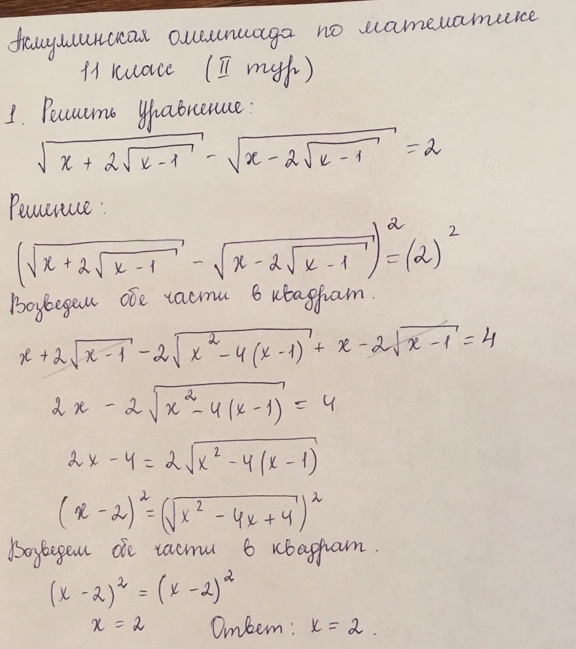 Акмуллинская олимпиада по математике
11 класс (II тур)
1. Решить уравнение:
√(x + 2√(x - 1)) - √(x - 2√(x - 1)) = 2
Решение:
(√(x + 2√(x - 1)) - √(x - 2√(x - 1)))² = (2)²
Возведем обе части в квадрат.
x + 2√(x - 1) - 2√(x² - 4(x - 1)) + x - 2√(x - 1) = 4
2x - 2√(x² - 4(x - 1)) = 4
2x - 4 = 2√(x² - 4(x - 1))
(x - 2)² = (√(x² - 4x + 4))²
Возведем обе части в квадрат.
(x - 2)² = (x - 2)²
x = 2 Ответ: x = 2.